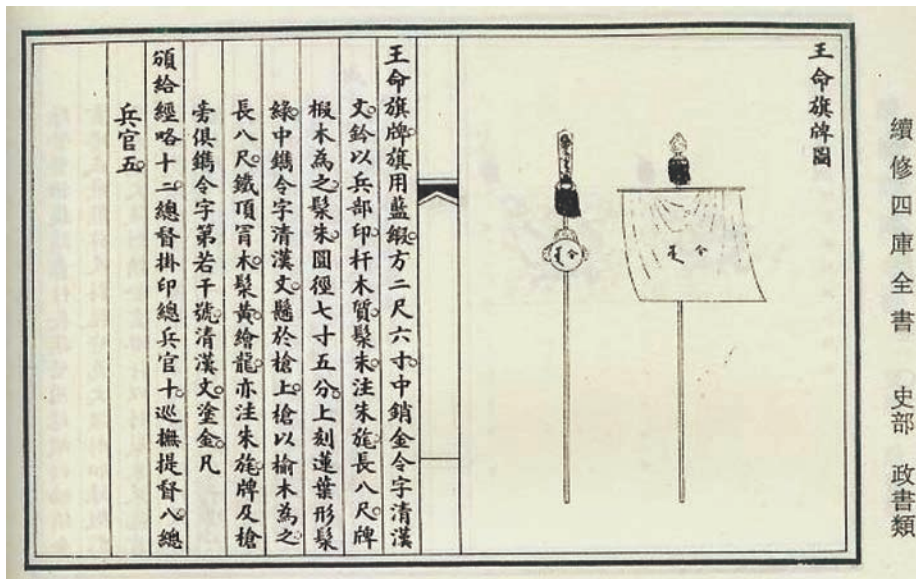 續修四庫全書 史部 政書類
王命旗牌圖
令
令
王命旗牌。旗用藍緞。方二尺六寸。中銷金令字清漢
文。鈐以兵部印。杆木質。髹朱。注朱旄。長八尺。牌
椵木為之。髹朱。圓徑七寸五分。上刻蓮葉形髹
綠。中鐫令字清漢文。懸於槍上。槍以榆木為之。
長八尺。鐵頂冐木。髹黃繪龍。亦注朱旄。牌及槍
旁俱鐫令字第若干號。清漢文塗金。凡
頒給經略十二。總督掛印總兵官十。巡撫提督八。總
兵官五。